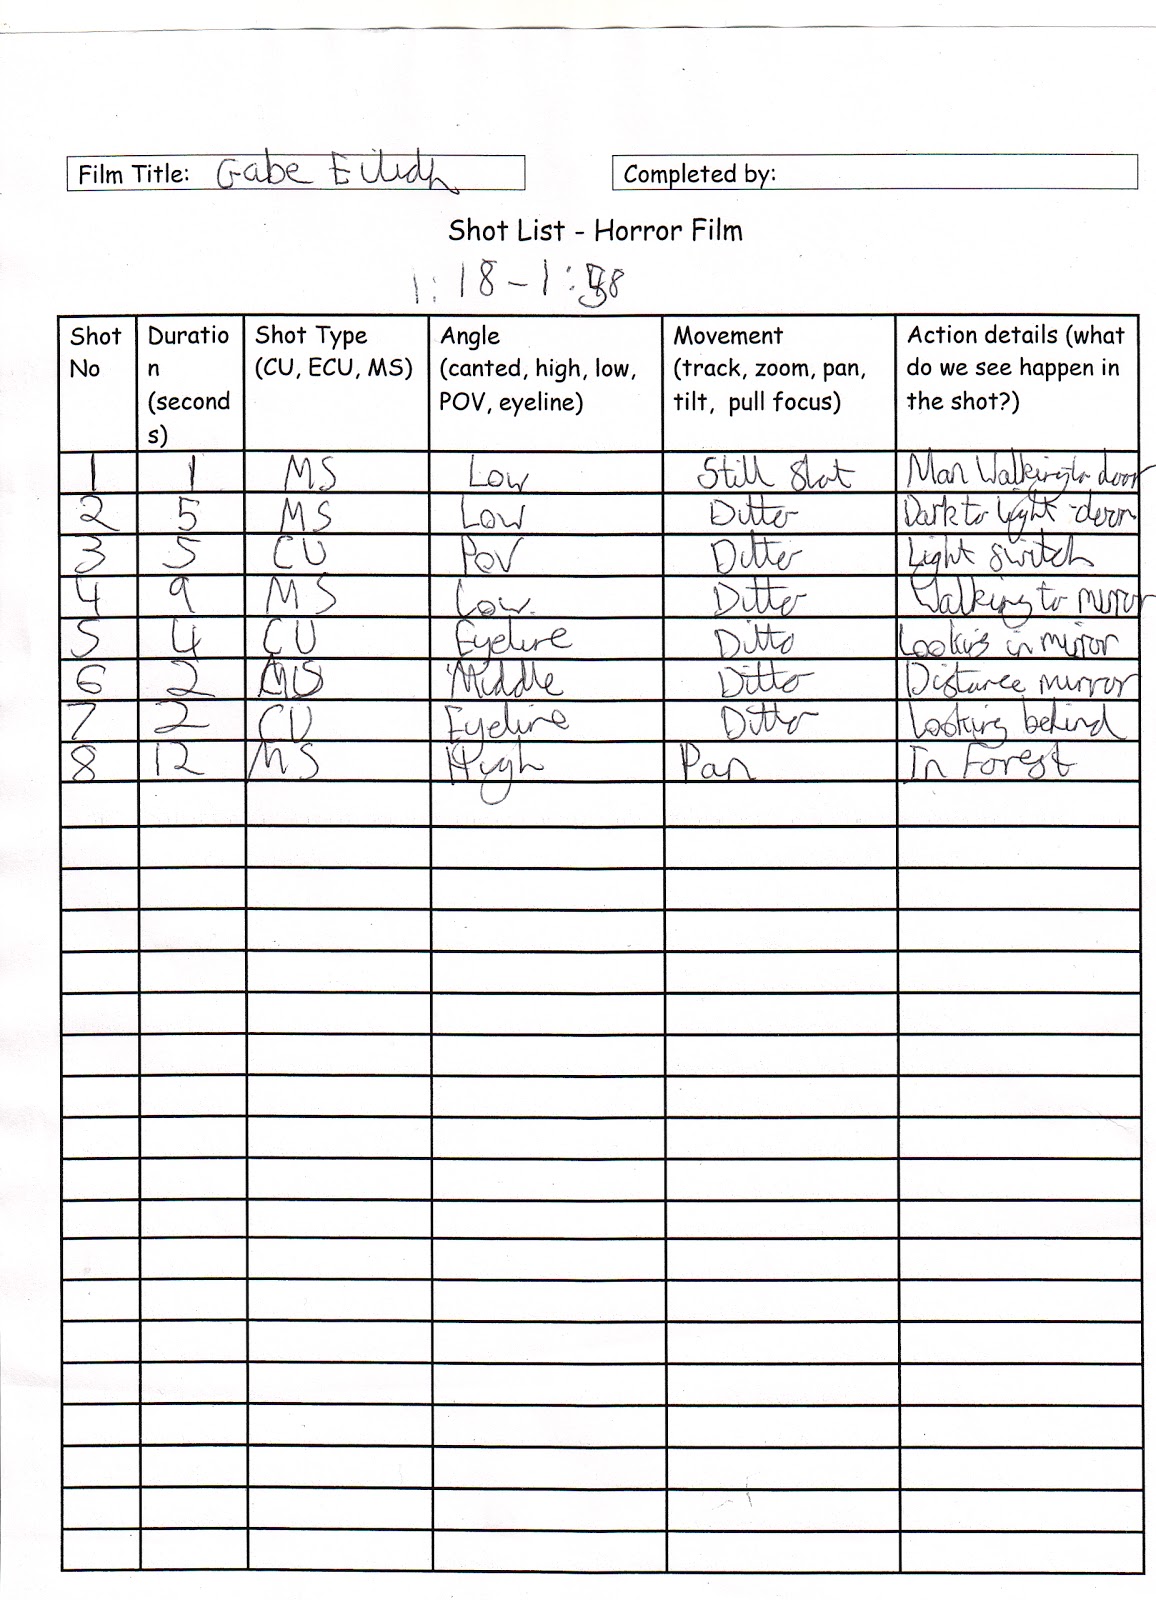 Film Title: Gabe Eilidh
Completed by:
Shot List - Horror Film
1:18-1:58
Shot No | Duration (seconds) | Shot Type (CU, ECU, MS) | Angle (canted, high, low, POV, eyeline) | Movement (track, zoom, pan, tilt, pull focus) | Action details (what do we see happen in the shot?)
1 1 MS Low Still Shot Man Walking to door
2 5 MS Low Ditto Dark to light - door
3 5 CU POV Ditto Light switch
4 9 MS Low. Ditto Walking to mirror
5 4 CU Eyeline Ditto Looking in mirror
6 2 MS Middle Ditto Distance mirror
7 2 CU Eyeline Ditto Looking behind
8 12 MS High Pan In Forest